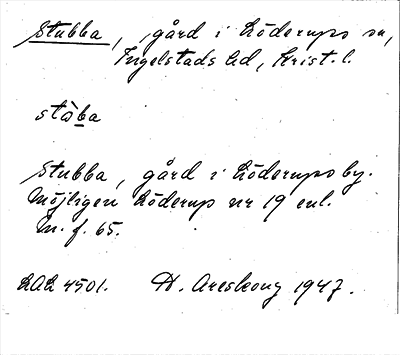 Stubba, gård i Löderups sn,
Ingelstads hd, Krist. l.
stòba
Stubba, gård i Löderups by.
Möjligen Löderup nr 19 enl.
m. f. 65.
LAL 4501. H. Areskoug 1947.